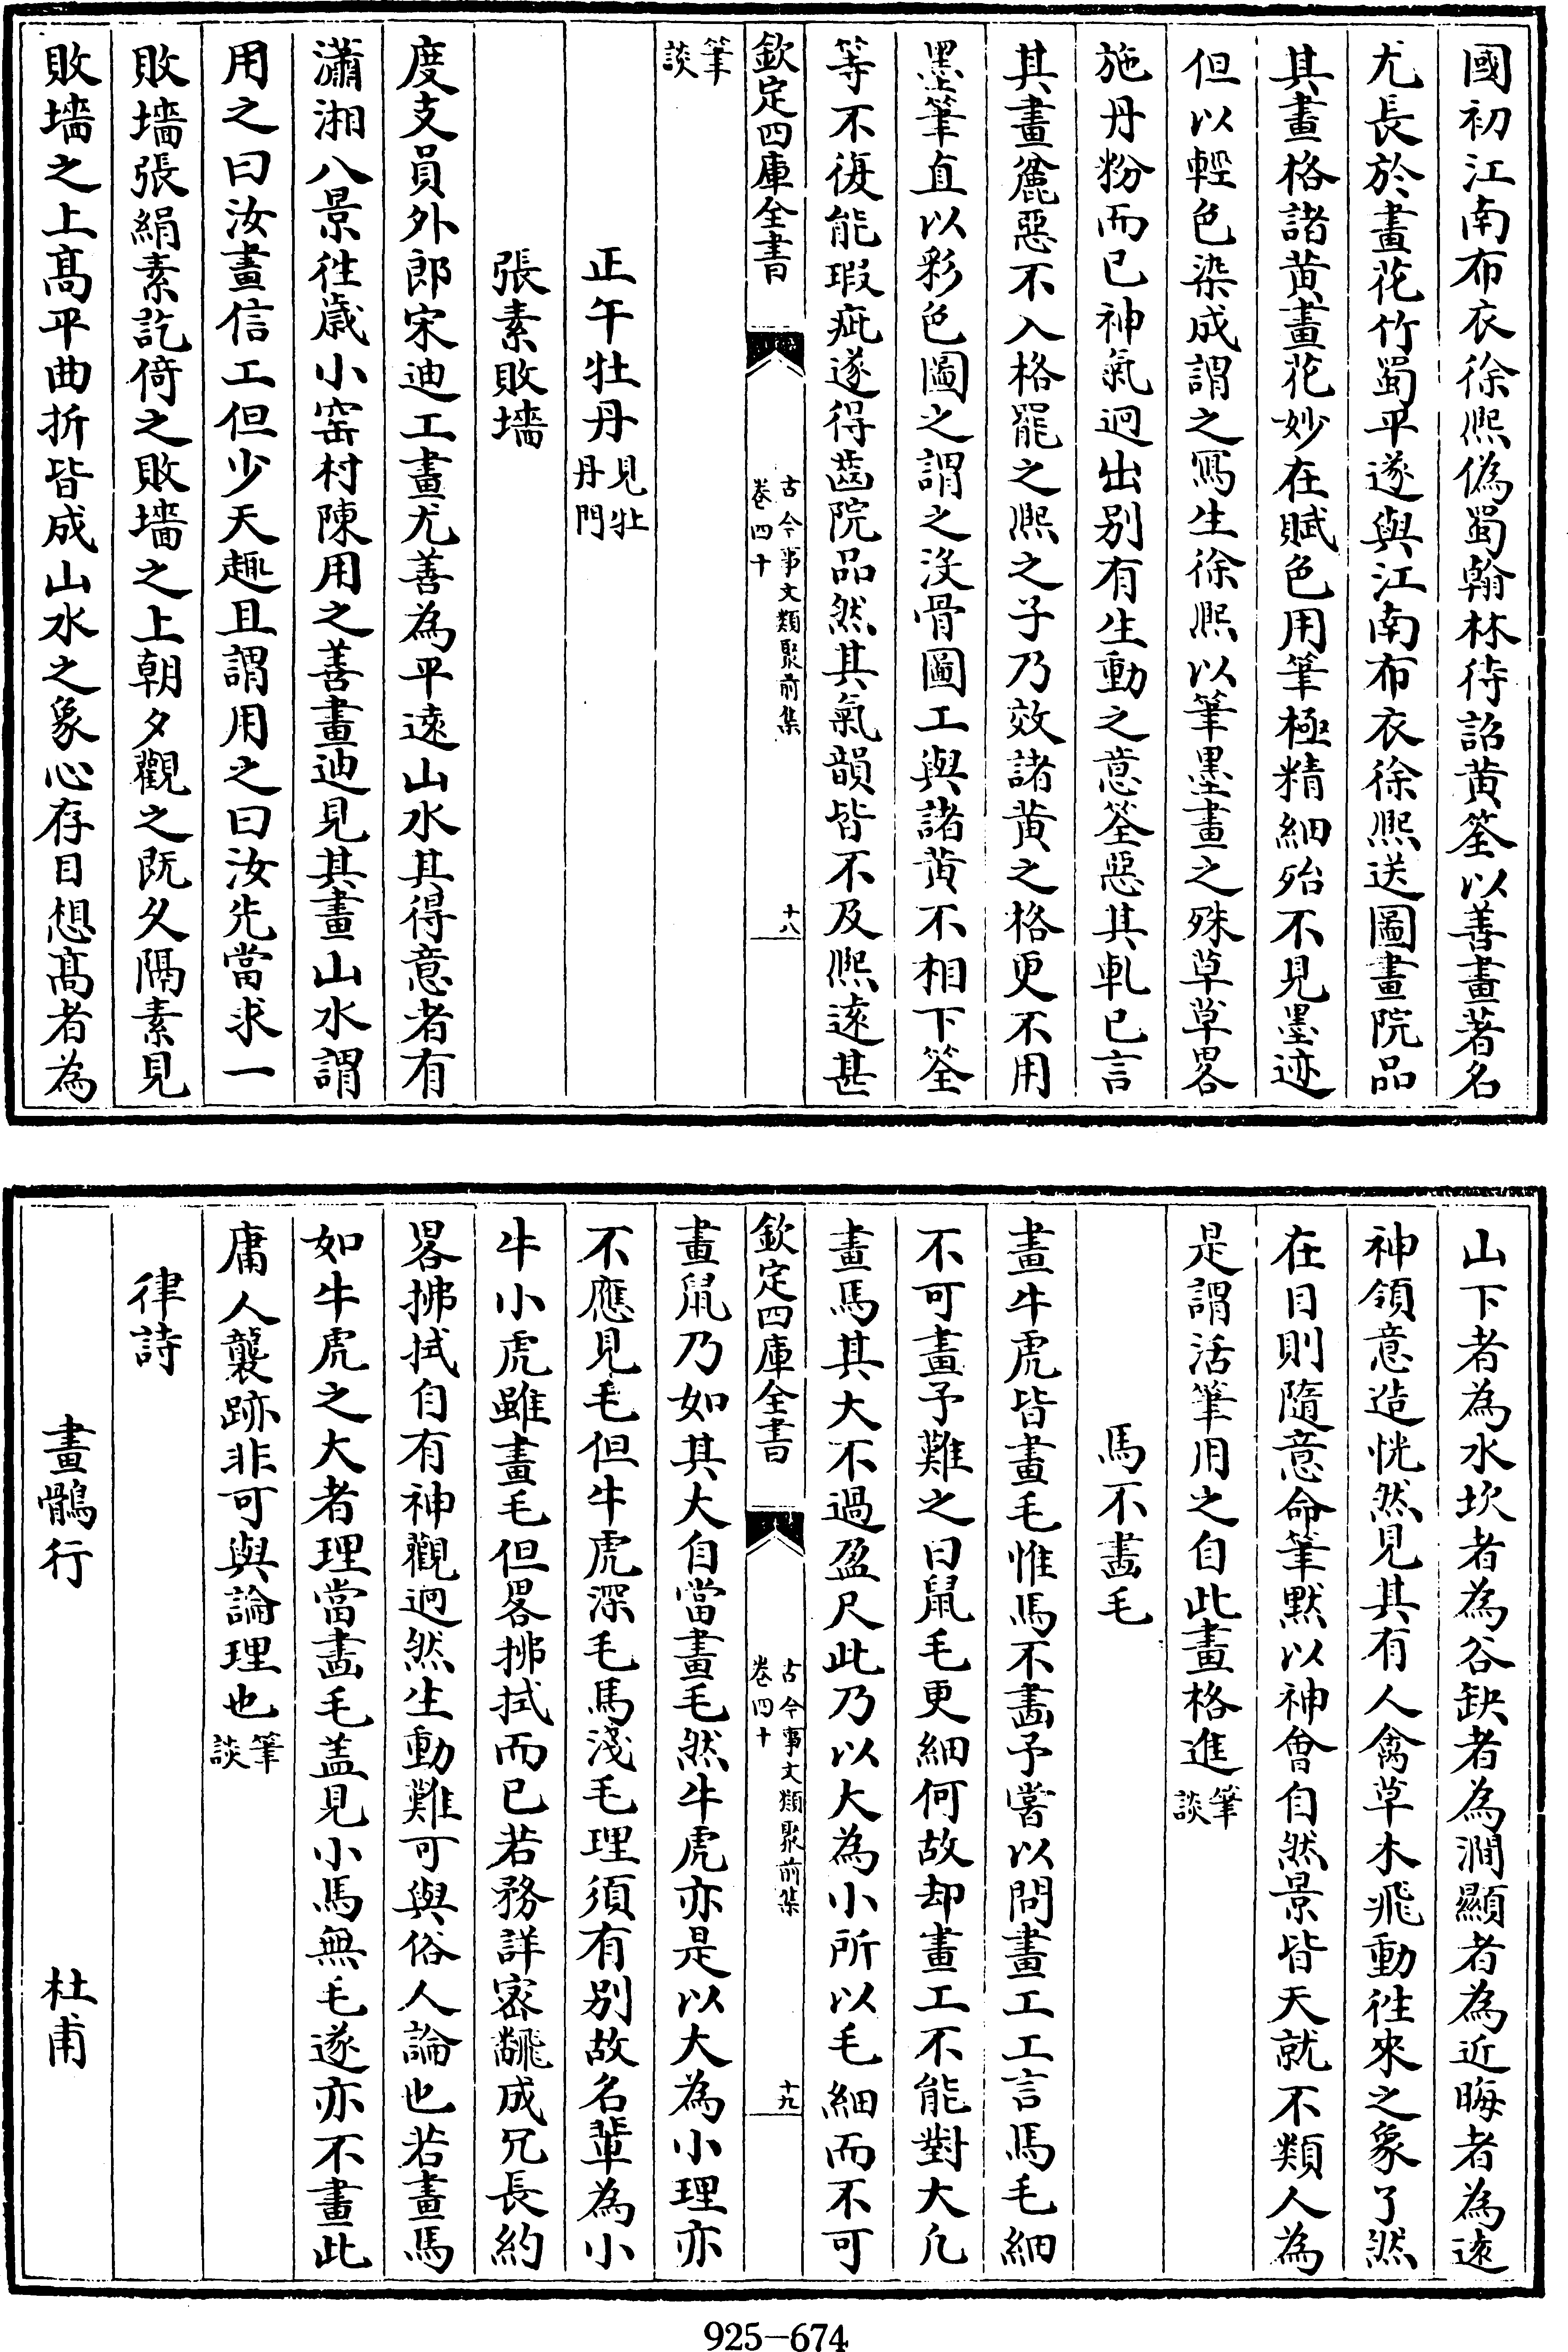 國初江南布衣徐熙偽蜀翰林待詔黄筌以善畫著名
尤長於畫花竹蜀平遂與江南布衣徐熙送圖畫院品
其畫格諸黄畫花妙在賦色用筆極精細殆不見墨迹
但以輕色染成謂之寫生徐熙以筆墨畫之殊草草畧
施丹粉而已神氣迥出别有生動之意筌惡其軋已言
其畫麄惡不入格罷之熙之子乃效諸黄之格更不用
墨筆直以彩色圖之謂之沒骨圖工與諸黄不相下筌
等不復能瑕疵遂得齒院品然其氣韻皆不及熙遠甚
欽定四庫全書 古今事文類聚前集 卷四十 十八
筆談
正午牡丹見牡丹門
張素敗墻
度支員外郎宋迪工畫尤善為平遠山水其得意者有
瀟湘八景往歲小窑村陳用之善畫迪見其畫山水謂
用之曰汝畫信工但少天趣且謂用之曰汝先當求一
敗墻張絹素訖倚之敗墻之上朝夕觀之既久隔素見
敗墻之上髙平曲折皆成山水之象心存目想髙者為
山下者為水坎者為谷缺者為澗顯者為近晦者為遠
神領意造恍然見其有人禽草木飛動往來之象了然
在目則隨意命筆默以神會自然景皆天就不類人為
是謂活筆用之自此畫格進筆談
馬不畫毛
畫牛虎皆畫毛惟馬不畫予嘗以問畫工工言馬毛細
不可畫予難之曰鼠毛更細何故却畫工不能對大凡
畫馬其大不過盈尺此乃以大為小所以毛細而不可
欽定四庫全書 古今事文類聚前集 卷四十 十九
畫鼠乃如其大自當畫毛然牛虎亦是以大為小理亦
不應見毛但牛虎深毛馬淺毛理須有别故名輩為小
牛小虎雖畫毛但畧拂拭而已若務詳宻翻成冗長約
畧拂拭自有神觀迥然生動難可與俗人論也若畫馬
如牛虎之大者理當畫毛盖見小馬無毛遂亦不畫此
庸人襲跡非可與論理也筆談
律詩
畫鶻行 杜甫
925-674